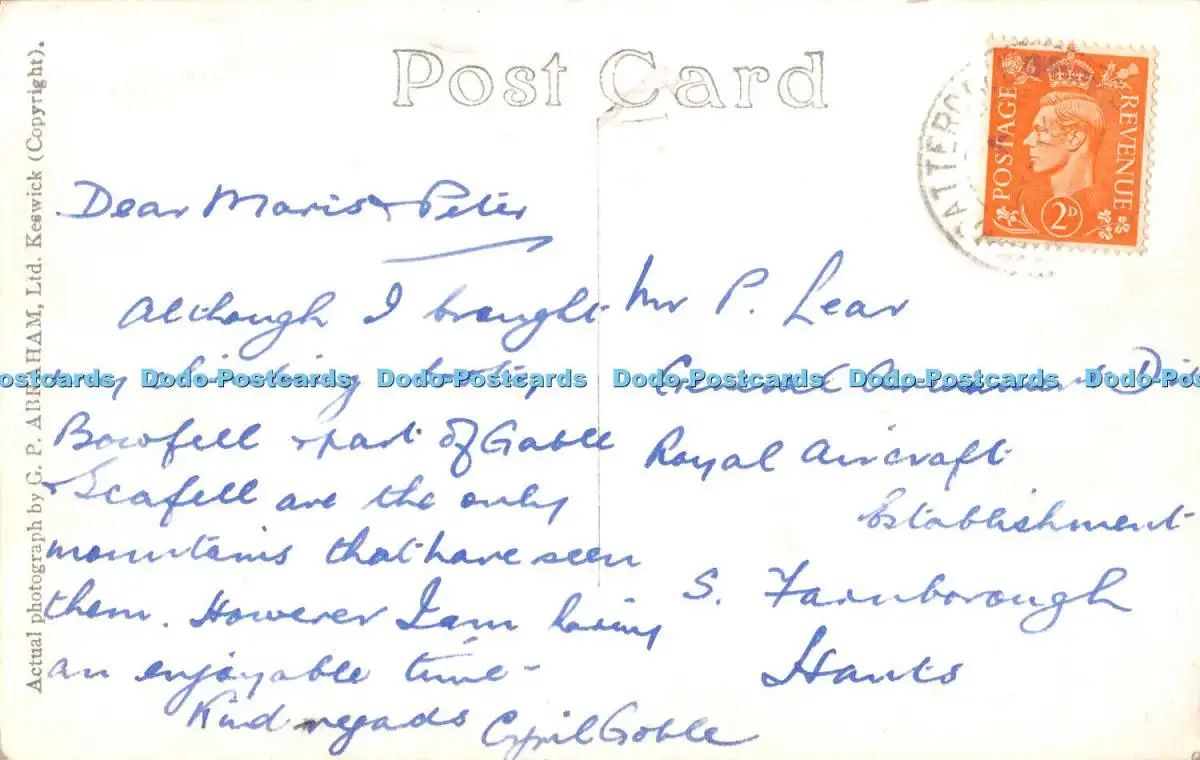 Post Card
PATTERD
POSTAGE
REVENUE
2D
Actual photograph by G. P. ABRAHAM, Ltd. Keswick (Copyright).
Dear Maris & Peter
Although I brought
my climbing boots
Bowfell & part of Gable
& Scafell are the only
mountains that have seen
them. However I am having
an enjoyable time -
Kind regads Cyril Goble
Mr P. Lear
Royal Aircraft
Establishment
S. Farnborough
Hants
Dodo-Postcards Dodo-Postcards Dodo-Postcards Dodo-Postcards